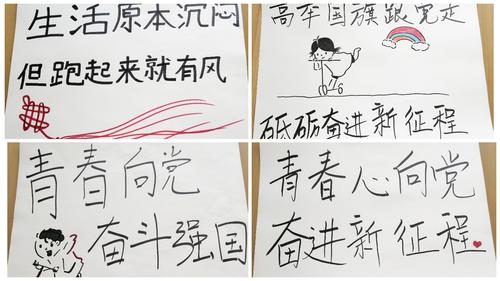 生活原本沉闷
但跑起来就有风
高举国旗跟党走
砥砺奋进新征程
青春向党
奋斗强国
青春心向党
奋进新征程